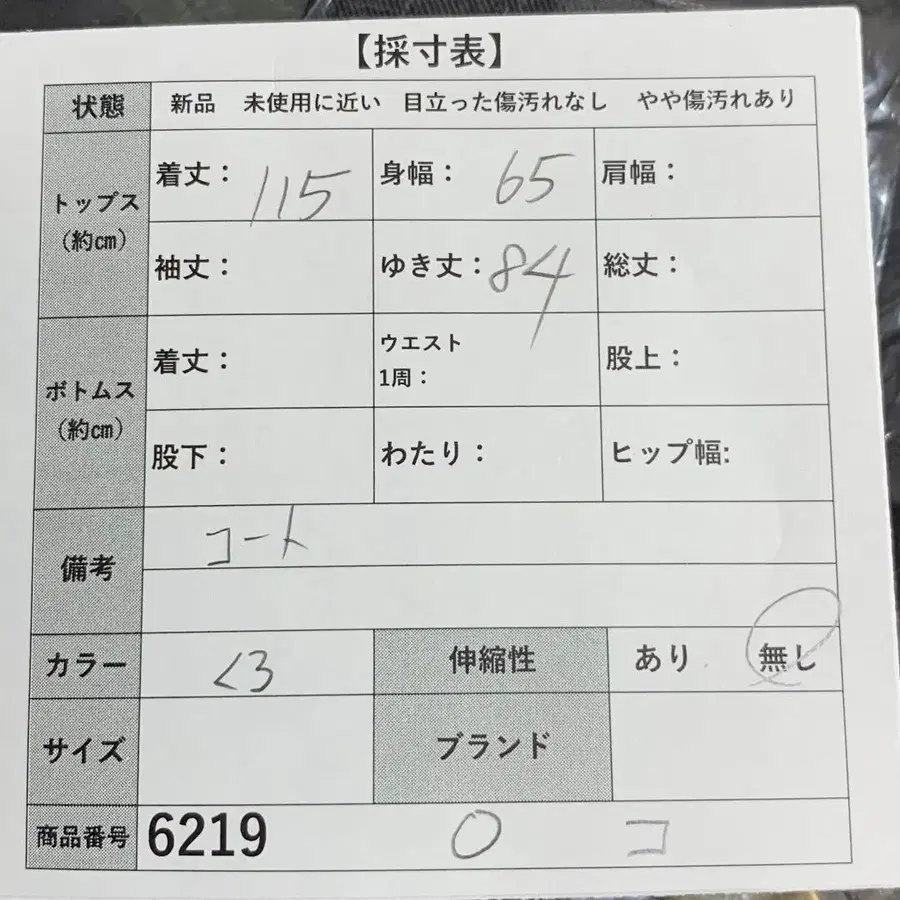 【採寸表】
状態 新品 未使用に近い 目立った傷汚れなし やや傷汚れあり
トップス（約㎝） 着丈：115 身幅：65 肩幅：
袖丈： ゆき丈：84 総丈：
ボトムス（約㎝） 着丈： ウエスト1周： 股上：
股下： わたり： ヒップ幅:
備考 コート
カラー くろ 伸縮性 あり 無し
サイズ ブランド
商品番号 6219 O コ